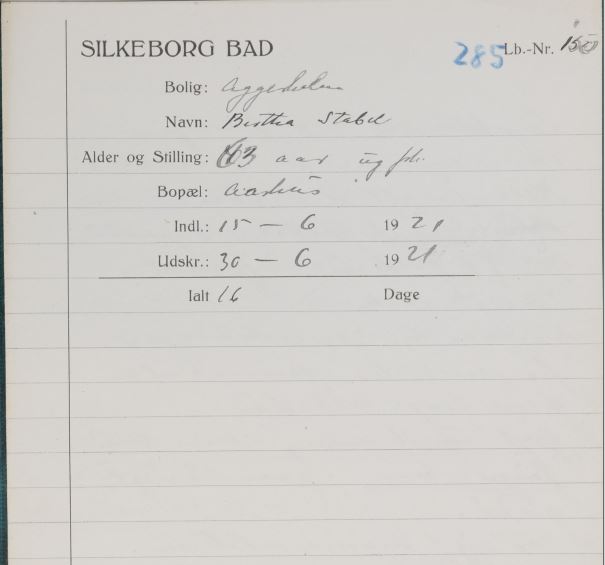 SILKEBORG BAD 285 Lb.-Nr. 150
Bolig:
Navn: Birtha Stabel
Alder og Stilling: 43 aar ug frk.
Bopæl: Aarhus
Indl.: 15 — 6 1921
Udskr.: 30 — 6 1921
Ialt 16 Dage